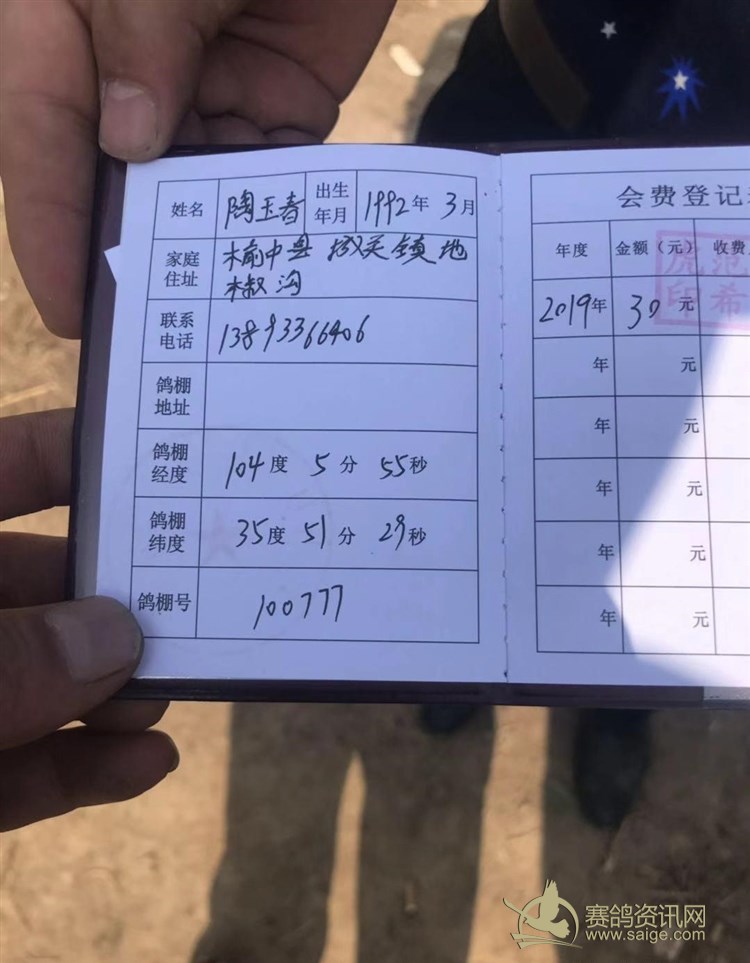 姓名 陶玉春 出生年月 1992年 3月
家庭住址 榆中县 城关镇地
椒沟
联系电话 13893366406
鸽棚地址
鸽棚经度 104度 5分 55秒
鸽棚纬度 35度 51分 29秒
鸽棚号 100777
会费登记
年度 金额(元) 收费
2019年 30元
范希虎印
年 元
年 元
年 元
年 元
年 元
赛鸽资讯网
www.saige.com